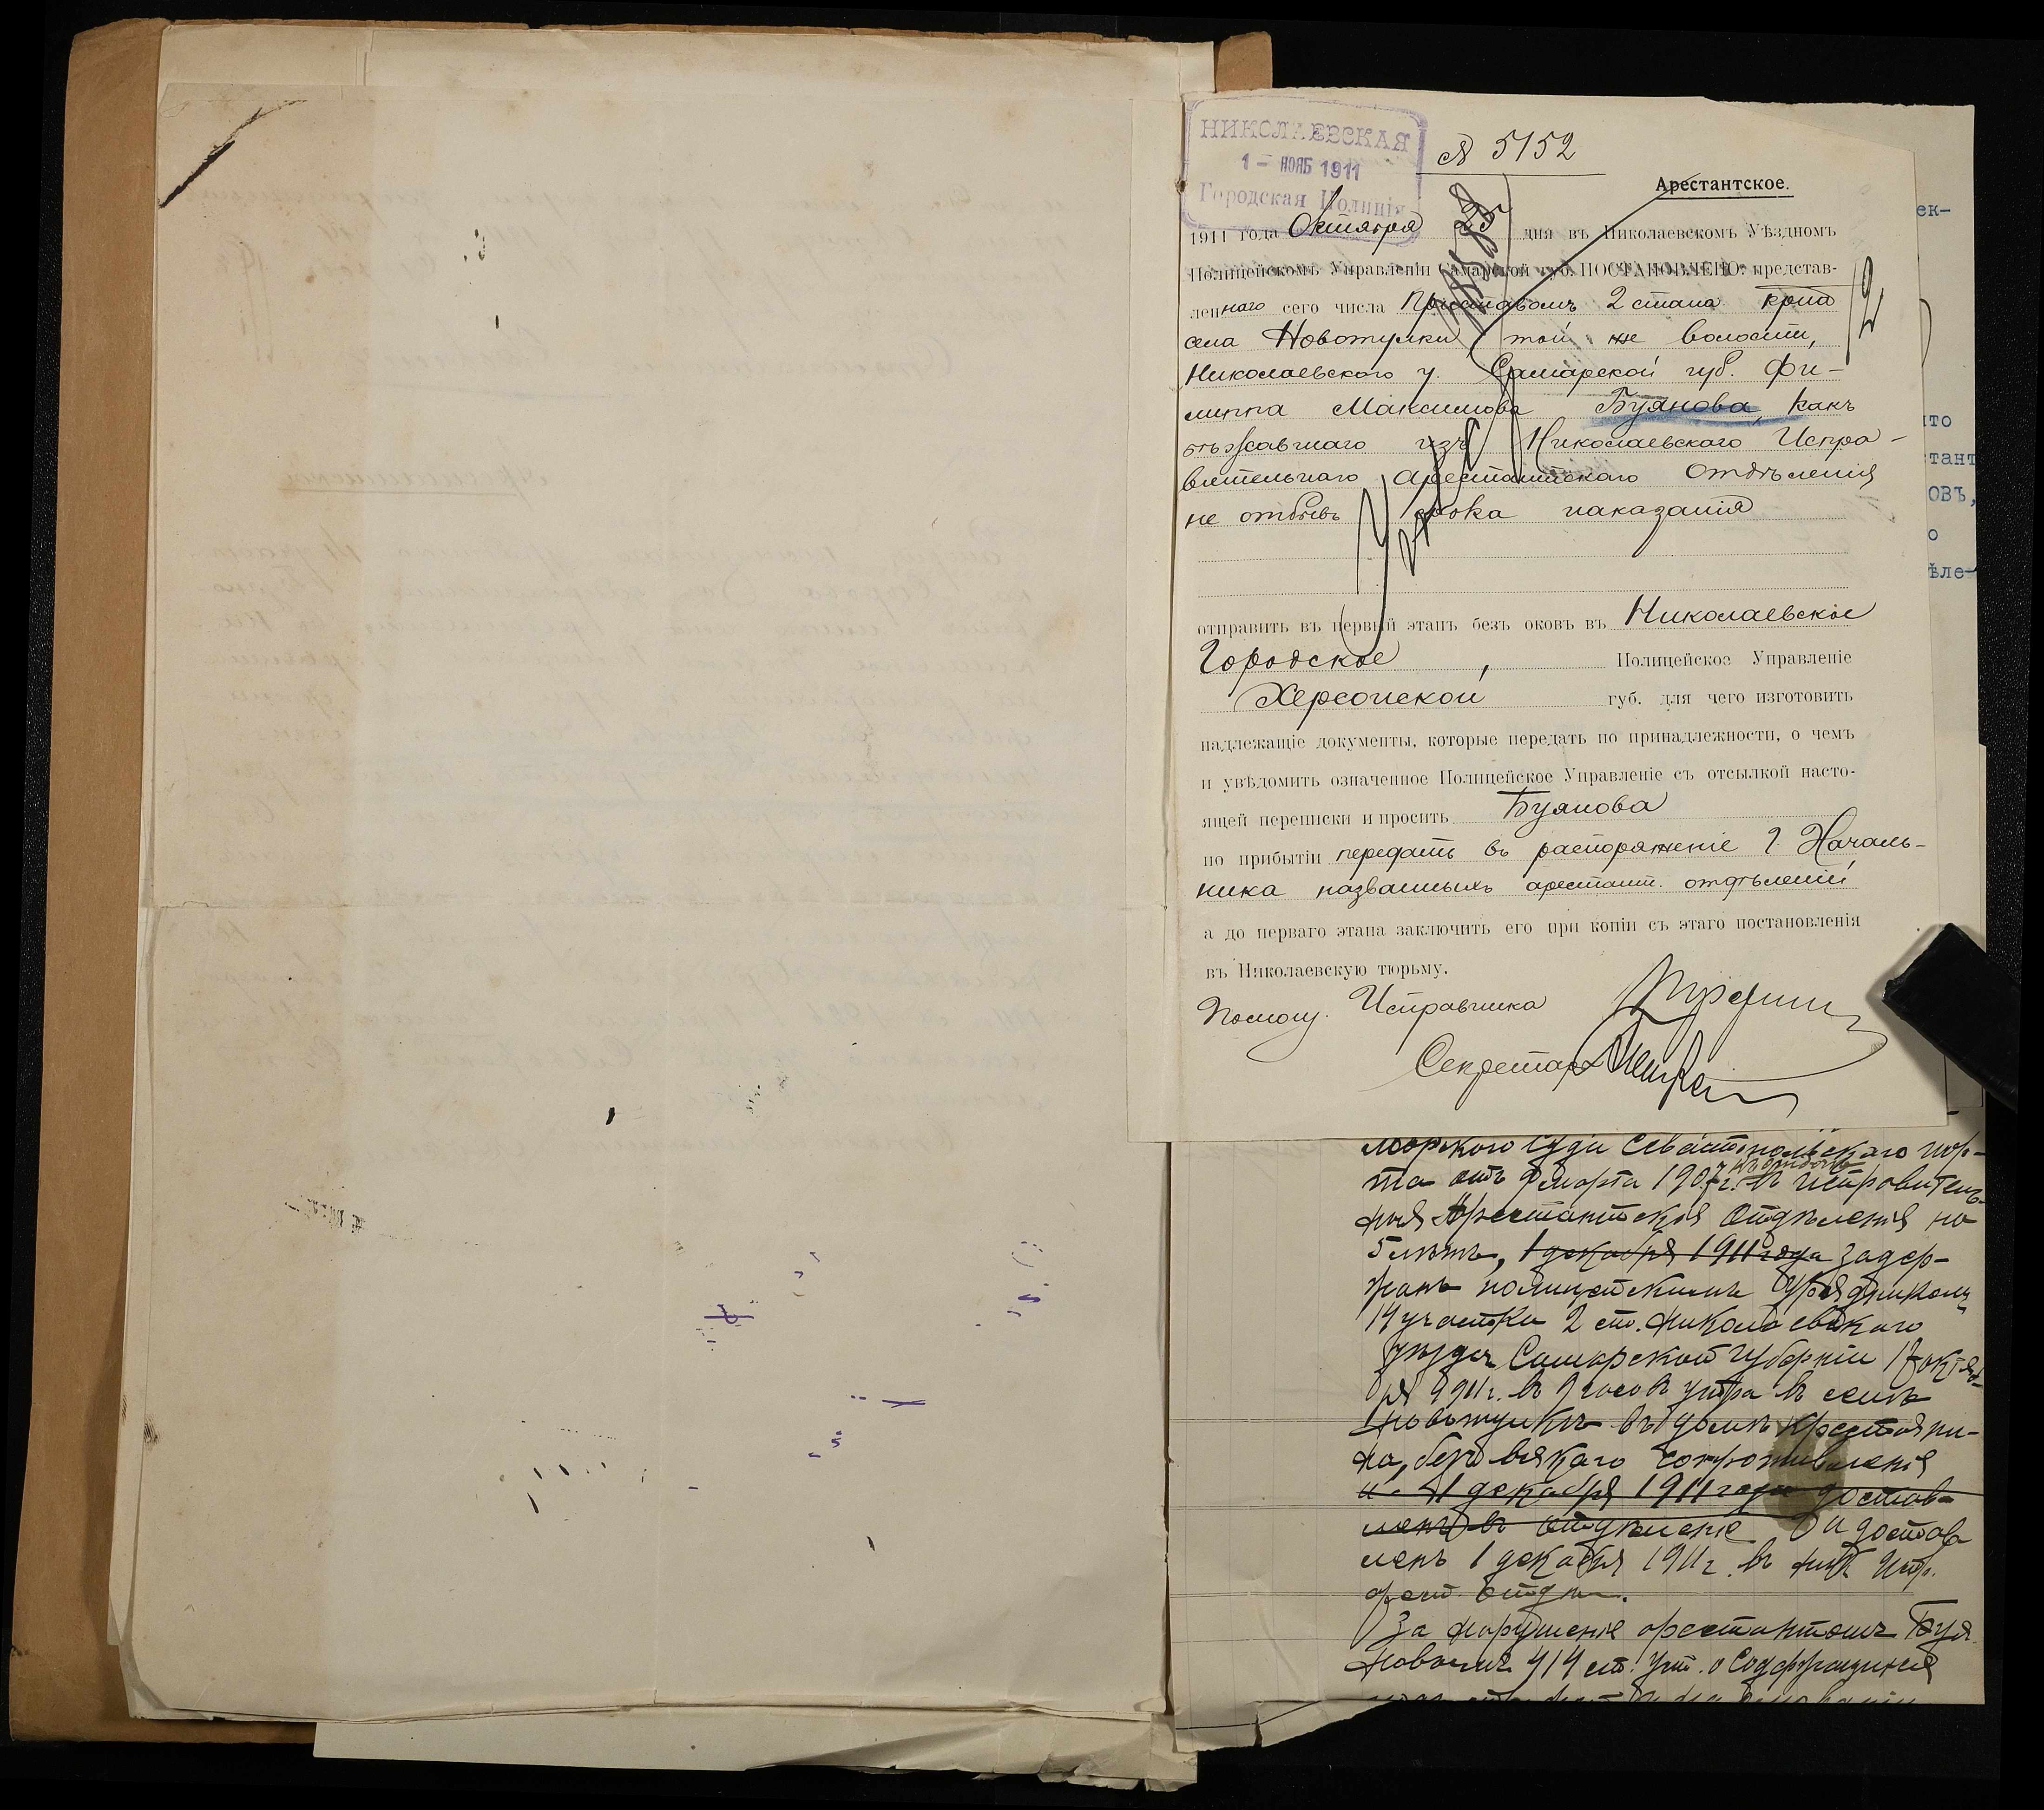 НИКОЛАЕВСКАЯ
1 – НОЯБ 1911
Городская Полиція
№ 5152
Арестантское.
1911 года Октября 25 дня въ Николаевскомъ Уѣздномъ
Полицейскомъ Управленіи Самарской губ. ПОСТАНОВЛЕНО: представ-
леннаго сего числа Приставомъ 2 стана крна
села Новотулки, той же волости,
Николаевскаго у. Самарской губ. Фи-
липпа Максимова Буянова, какъ
бѣжавшаго изъ Николаевскаго Испра-
вительнаго Арестантскаго Отдѣленія
не отбывъ срока наказанія
отправить въ первый этапъ безъ оковъ въ Николаевское
Городское, Полицейское Управленіе
Херсонской губ. для чего изготовить
надлежащіе документы, которые передать по принадлежности, о чемъ
и увѣдомить означенное Полицейское Управленіе съ отсылкой насто-
ящей переписки и просить Буянова
по прибытіи передать въ распоряженіе Г. Началь-
ника названныхъ арестант. отдѣленій
а до перваго этапа заключить его при копіи съ этаго постановленія
въ Николаевскую тюрьму.
Помощ. Исправника
Секретарь
ек-
то
тант
ОВЪ,
о
ѣле-
Морского Суда Севастопольскаго пор-
та отъ 9 марта 1907 г. въ исправитель-
ныя Арестантскія Отдѣленія на
5 лѣтъ, 1 декабря 1911 года задер-
жанъ полицейскимъ Урядникомъ
14 участка 2 ст. Николаевскаго
уѣзда Самарской Губерніи 17 октяб-
ря 1911 г. въ 9 часовъ утра въ селѣ
Новотулкѣ въ домѣ крестьяни-
на, безъ всякаго сопротивленія
и 1 декабря 1911 года достав-
ленъ въ отдѣленіе и достав
ленъ 1 декабря 1911 г. въ Ник. Испр.
арест. отдѣл.
За нарушеніе арестантомъ Буя
новымъ 414 ст. Уст. о Содержащихся